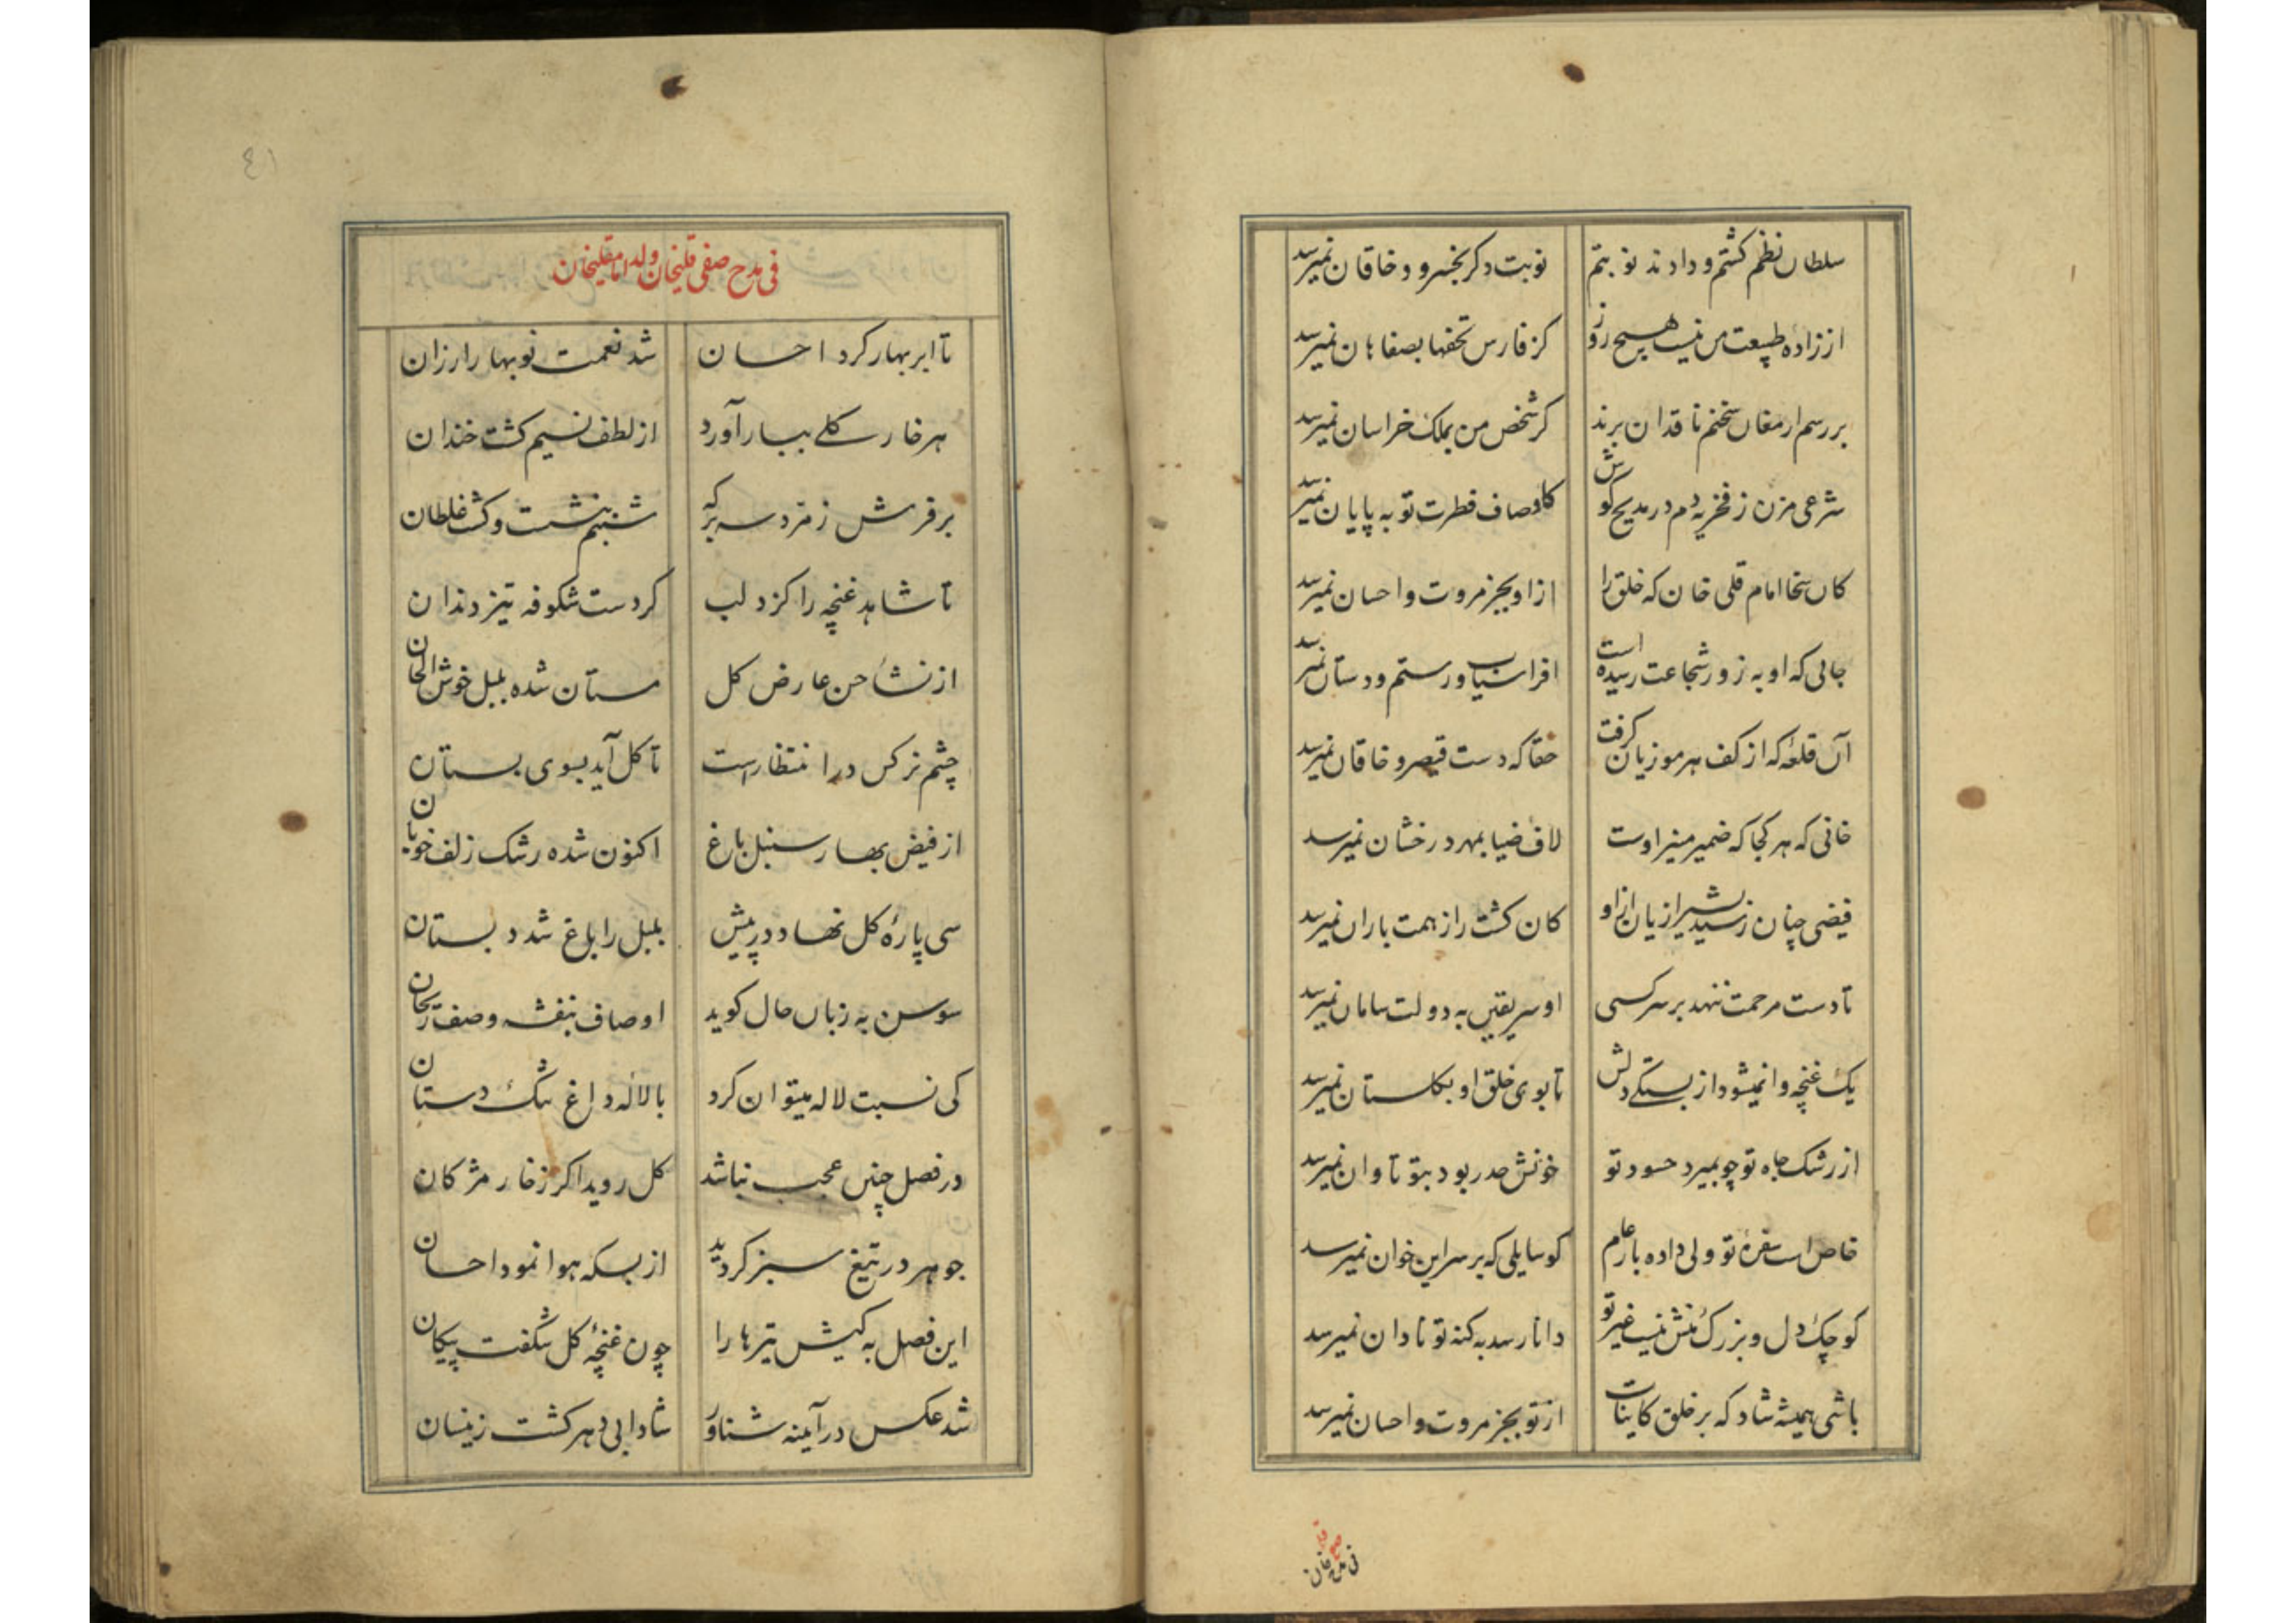 سلطان نظم کشتم و دادند نوبتم نوبت دکر بخسرو و خاقان نمیرسد
از زادهٔ طبیعت من نیست هیچ روز کز فارس تحفها بصفاهان نمیرسد
بر رسم ارمغان سخنم ناقدان برند کر شخص من بملک خراسان نمیرسد
شرعی مزن ز فخریه دم در مدیح کوش کاوصاف فطرت تو به پایان نمیرسد
کان سخا امام قلی خان که خلق را از او بجز مروت و احسان نمیرسد
جائی که او به زور شجاعت رسیده است افراسیاب و رستم و دستان نمیرسد
آن قلعه که از کف هرموزیان کرفت حقا که دست قیصر و خاقان نمیرسد
خانی که هر کجا که ضمیر منیر اوست لاف ضیا بمهر درخشان نمیرسد
فیضی چنان رسید بشیرازیان ازاو کان کشت را ز همت باران نمیرسد
تا دست مرحمت ننهد بر سر کسی او سر یقین به دولت سامان نمیرسد
یک غنچه وا نمیشود از بستکی دلش تا بوی خلق او بکلستان نمیرسد
از رشک جاه تو چو بمیرد حسود تو خونش هدر بود بتو تاوان نمیرسد
خاص است سفرهٔ تو ولی داده بار عام کو سایلی که بر سر این خوان نمیرسد
کوچک دل و بزرک منش نیست غیر تو دانا رسد به کنه تو نادان نمیرسد
باشی همیشه شاد که بر خلق کاینات از تو بجز مروت و احسان نمیرسد
فی مدح صفی قلیخان ولد امامقلیخان
تا ابر بهار کرد احسان شد نعمت نوبهار ارزان
هر خار سر کلی ببار آورد از لطف نسیم کشت خندان
بر فرش زمرد سه برکه شبنم بنشست و کشت غلطان
تا شاهد غنچه را کزد لب کردست شکوفه تیز دندان
از نشأ حسن عارض کل مستان شده بلبل خوش الحان
چشم نرکس در انتظار است تا کل آید بسوی بستان
از فیض بهار سنبل باغ اکنون شده رشک زلف خوبان
سی پارهٔ کل نهاد در پیش بلبل را باغ شد دبستان
سوسن به زبان حال کوید اوصاف بنفشه وصف ریحان
کی نسبت لاله میتوان کرد با لاله داغ تنک دستان
در فصل چنین عجب نباشد کل روید اکر ز خار مژکان
جوهر در تیغ سبز کردید از بسکه هوا نمود احسان
این فصل به کیش تیرها را چون غنچهٔ کل شکفت پیکان
شد عکس در آینه شناور شادابی دهر کشت زینسان